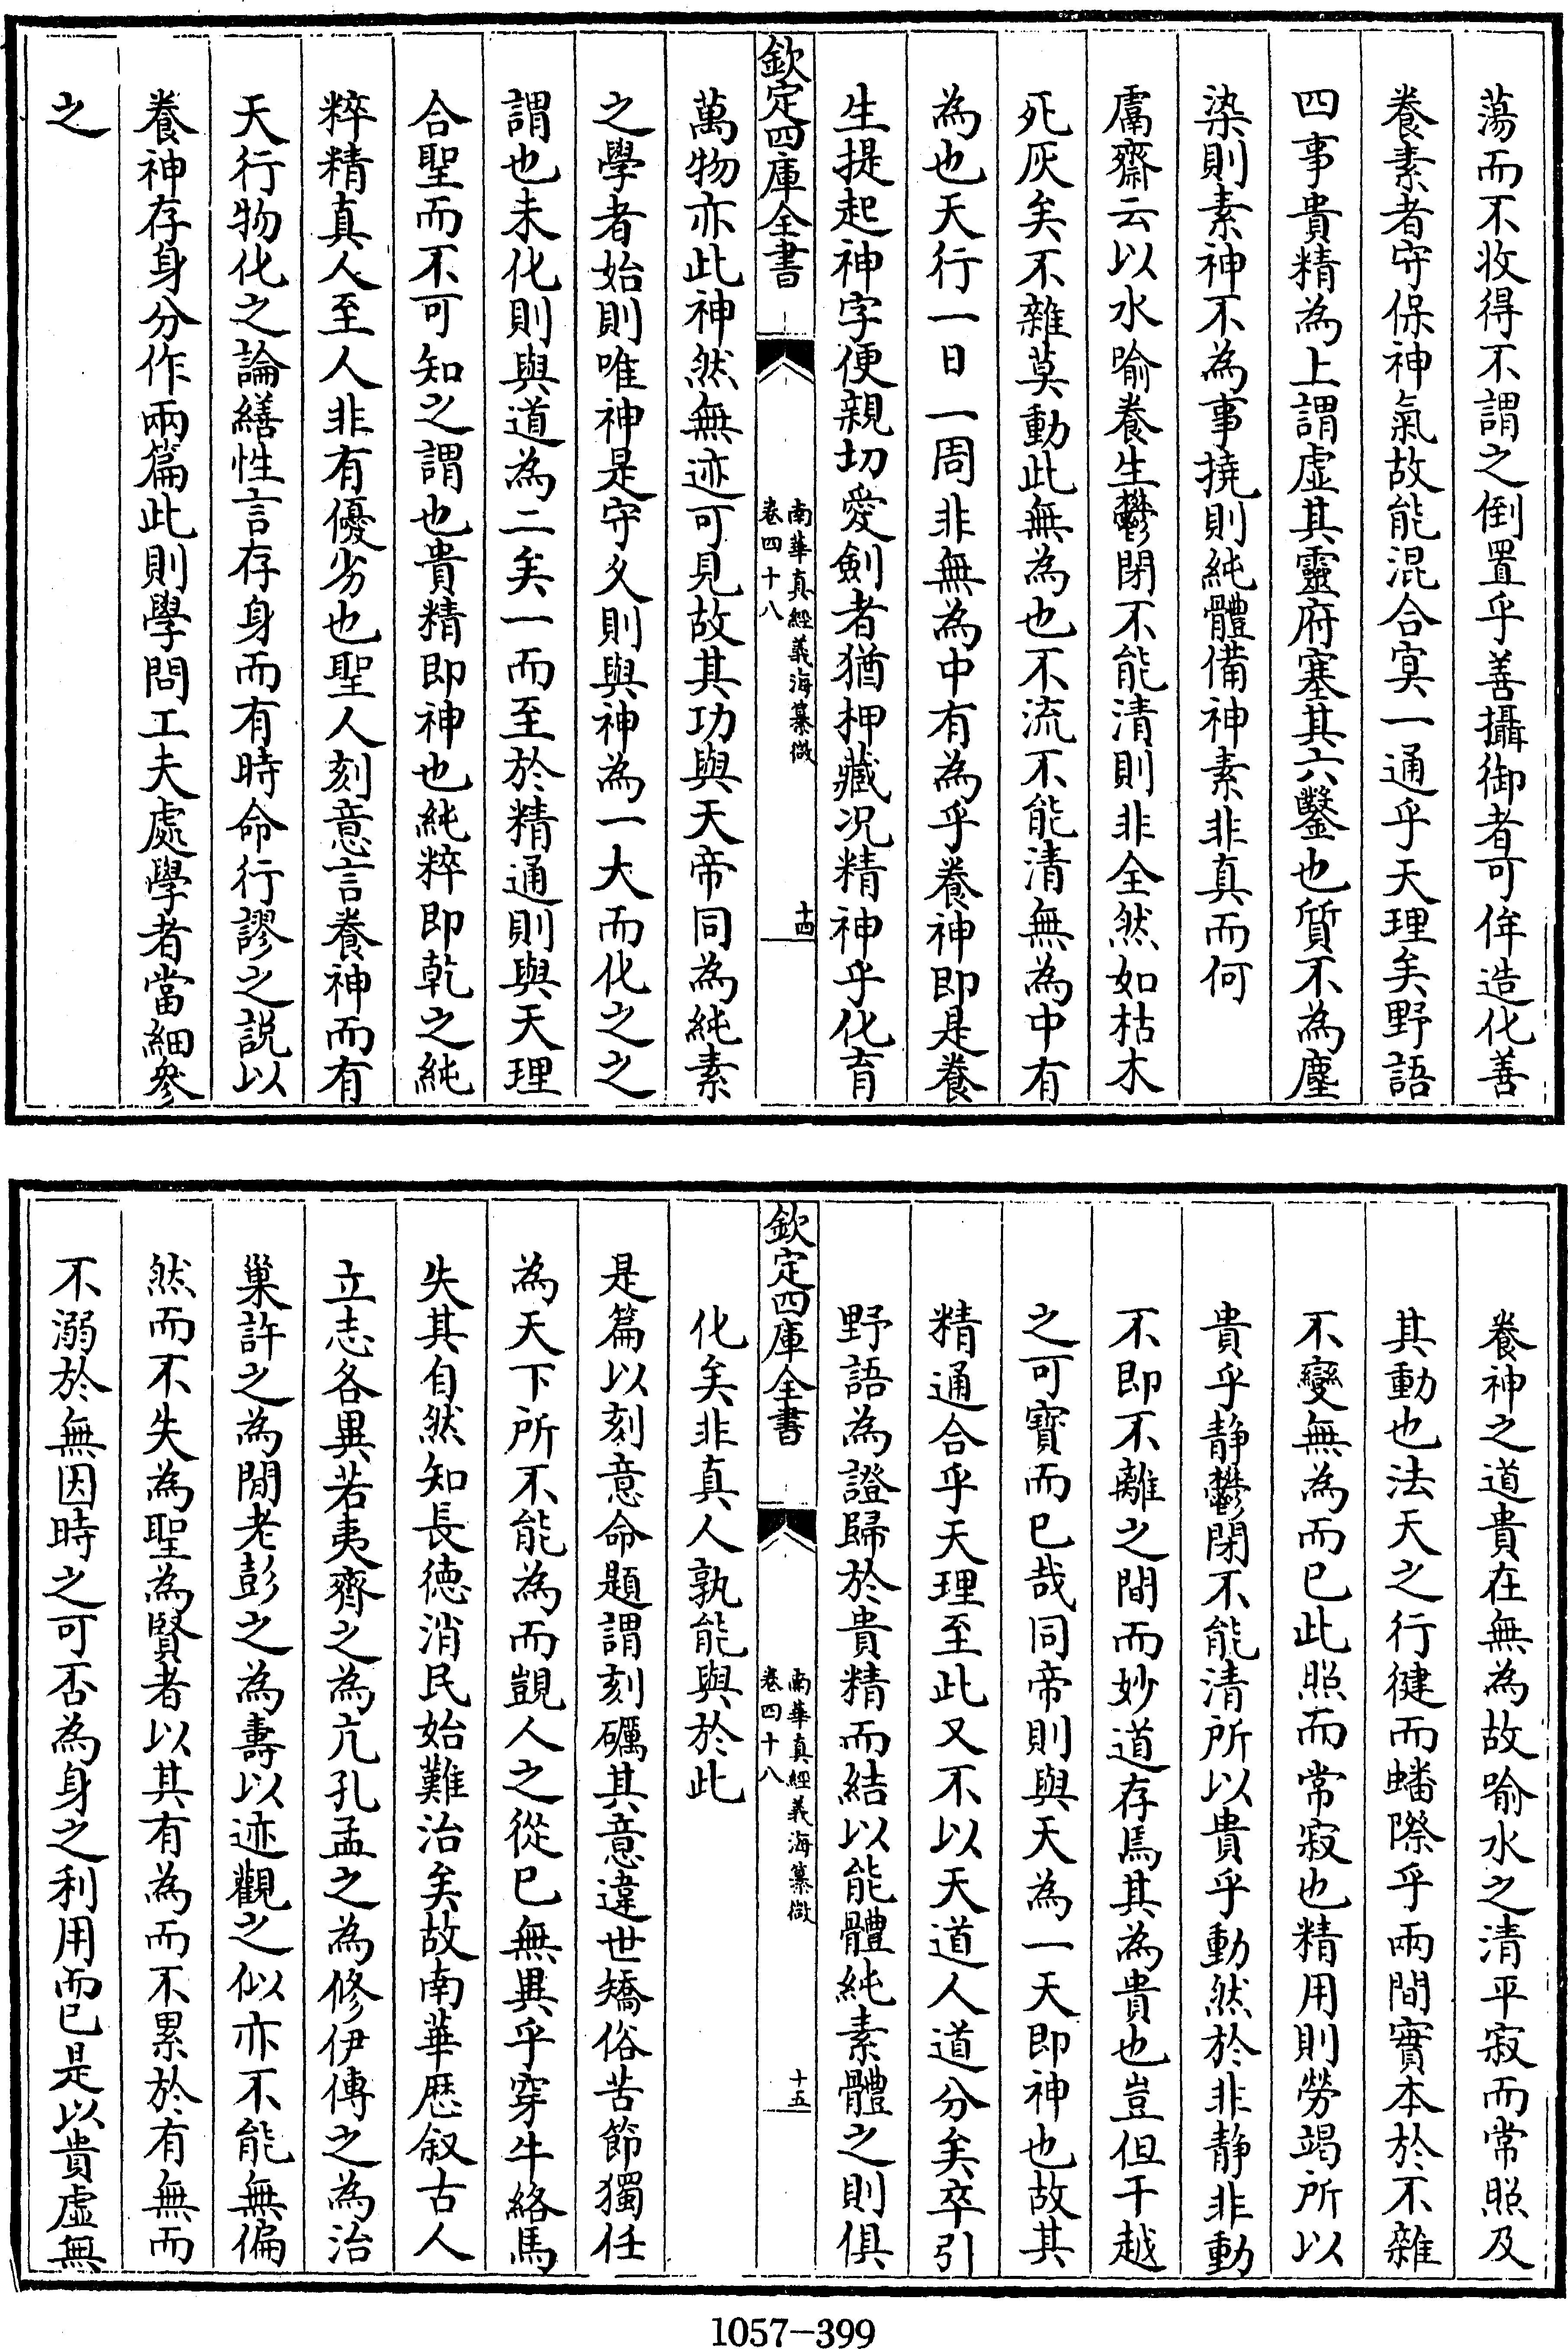 蕩而不收得不謂之倒置乎善攝御者可侔造化善
養素者守保神氣故能混合冥一通乎天理矣野語
四事貴精為上謂虛其靈府塞其六鑿也質不為塵
染則素神不為事撓則純體備神素非真而何
鬳齋云以水喻養生鬱閉不能清則非全然如枯木
死灰矣不雜莫動此無為也不流不能清無為中有
為也天行一日一周非無為中有為乎養神即是養
生提起神字便親切愛劍者猶押藏況精神乎化育
欽定四庫全書
南華真經義海纂微
卷四十八
十四
萬物亦此神然無迹可見故其功與天帝同為純素
之學者始則唯神是守久則與神為一大而化之之
謂也未化則與道為二矣一而至於精通則與天理
合聖而不可知之謂也貴精即神也純粹即乾之純
粹精真人至人非有優劣也聖人刻意言養神而有
天行物化之論繕性言存身而有時命行謬之説以
養神存身分作兩篇此則學問工夫處學者當細參
之
養神之道貴在無為故喻水之清平寂而常照及
其動也法天之行健而蟠際乎兩間實本於不雜
不變無為而已此照而常寂也精用則勞竭所以
貴乎静鬱閉不能清所以貴乎動然於非静非動
不即不離之間而妙道存焉其為貴也豈但干越
之可寶而已哉同帝則與天為一天即神也故其
精通合乎天理至此又不以天道人道分矣卒引
野語為證歸於貴精而結以能體純素體之則俱
欽定四庫全書
南華真經義海纂微
卷四十八
十五
化矣非真人孰能與於此
是篇以刻意命題謂刻礪其意違世矯俗苦節獨任
為天下所不能為而覬人之從已無異乎穿牛絡馬
失其自然知長徳消民始難治矣故南華歴叙古人
立志各異若夷齊之為亢孔孟之為修伊傅之為治
巢許之為閒老彭之為壽以迹觀之似亦不能無偏
然而不失為聖為賢者以其有為而不累於有無而
不溺於無因時之可否為身之利用而已是以貴虛無
1057—399